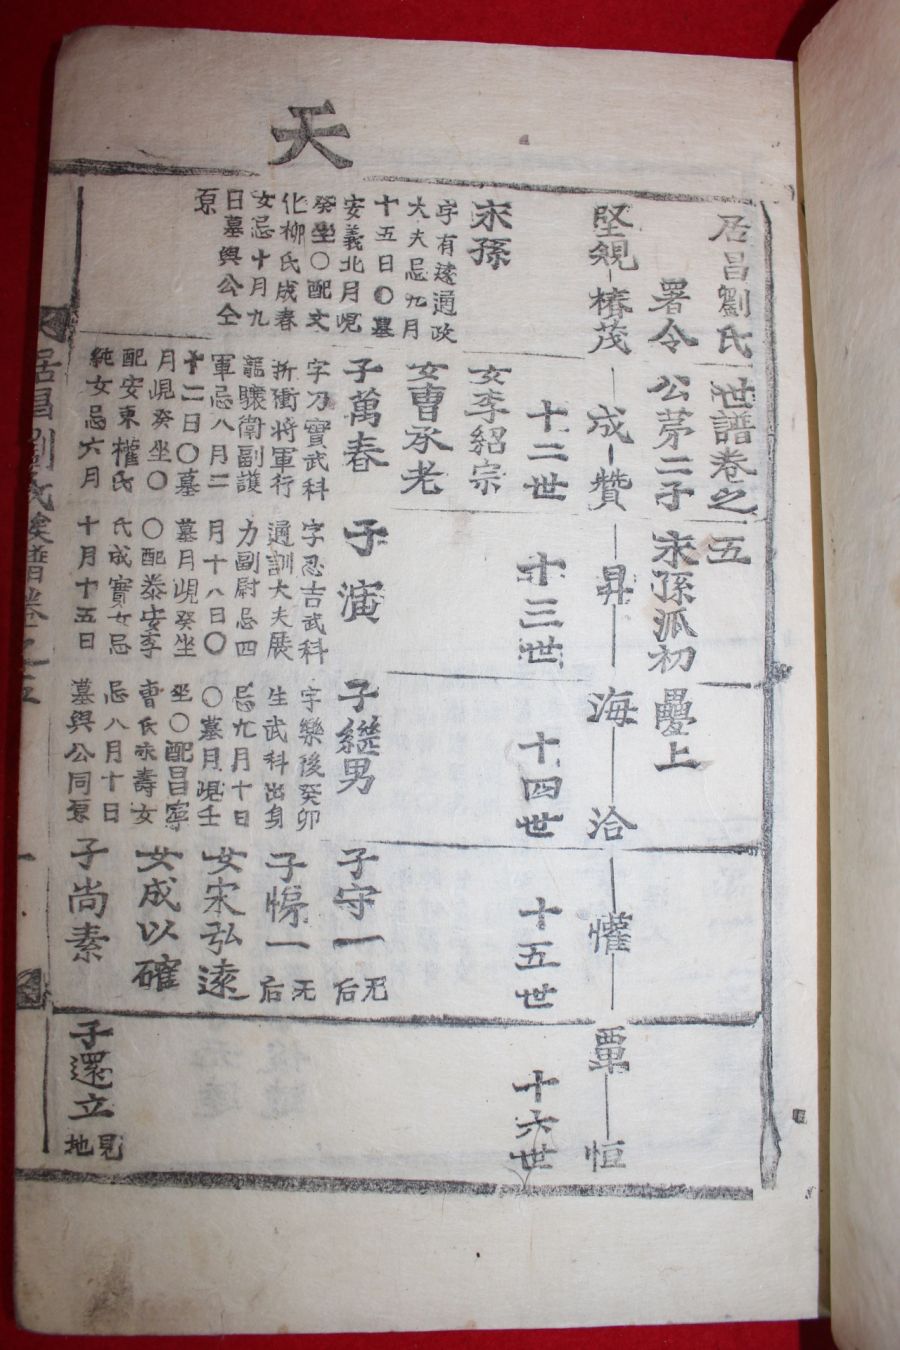 天
居昌劉氏世譜卷之五
署令公茅二子宋孫派初疊上
堅規椿茂成贊昇海洽懽覃恒
十二世
十三世
十四世
十五世
十六世
宋孫
字有遠通政
大夫忌九月
十五日〇墓
安義北月峴
癸坐〇配文
化柳氏成春
女忌十月九
日墓與公仝
原
女李紹宗
女曺承老
子萬春
字乃寶武科
折衝将軍行
龍驤衛副護
軍忌八月二
十二日〇墓
月峴癸坐〇
配安東權氏
純女忌六月
十月十五日
子演
字忍吉武科
通訓大夫展
力副尉忌四
月十八日〇
墓月峴癸坐
〇配泰安李
氏成實女忌
子繼男
字樂後癸卯
生武科出身
忌九月十日
〇墓月峴壬
坐〇配昌寧
曺氏永壽女
忌八月十日
墓與公同原
子守一
无后
子悌一
无后
女宋弘遠
女成以確
子尚素
子還立
見地
居昌劉氏族譜卷之五
一